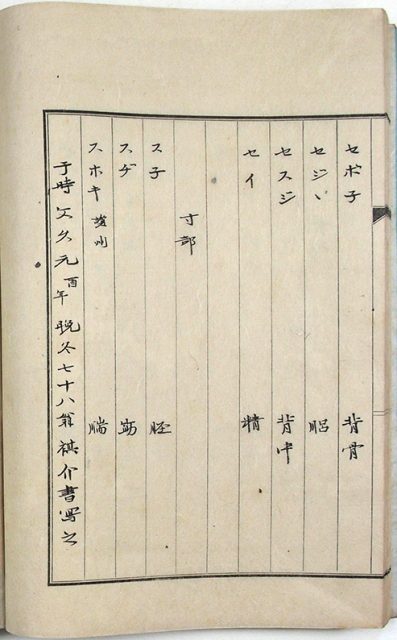 セボ子 背骨
セジヽ
セスジ 背中
セイ 精
寸部
ス子 脛
スヂ 筋
スホキ
于時文久元酉年晩冬七十八翁祺介書写之